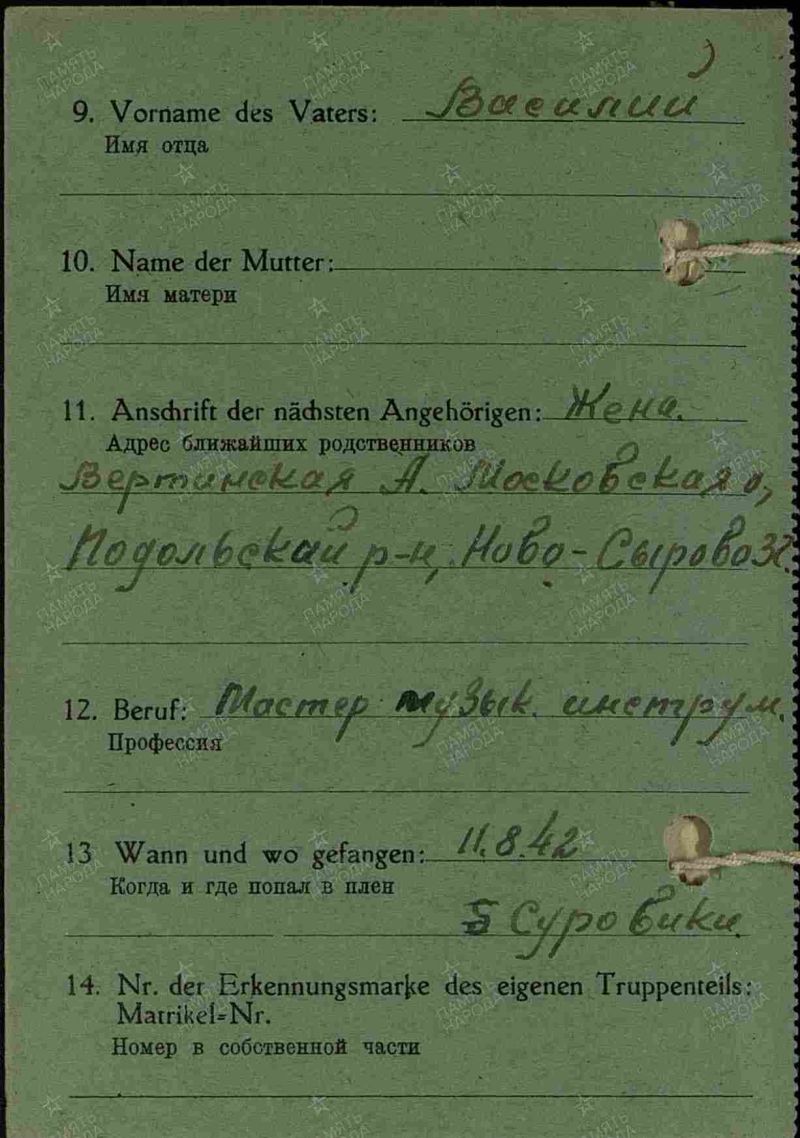 9. Vorname des Vaters: Василий
Имя отца
10. Name der Mutter:
Имя матери
11. Anschrift der nächsten Angehörigen: Жена.
Адрес ближайших родственников
Вертинская А. Московская о,
Подольский р-н, Ново-Сырово
12. Beruf: Мастер музык. инструм.
Профессия
13 Wann und wo gefangen: 11.8.42
Когда и где попал в плен
Суровики
14. Nr. der Erkennungsmarke des eigenen Truppenteils:
Matrikel-Nr.
Номер в собственной части